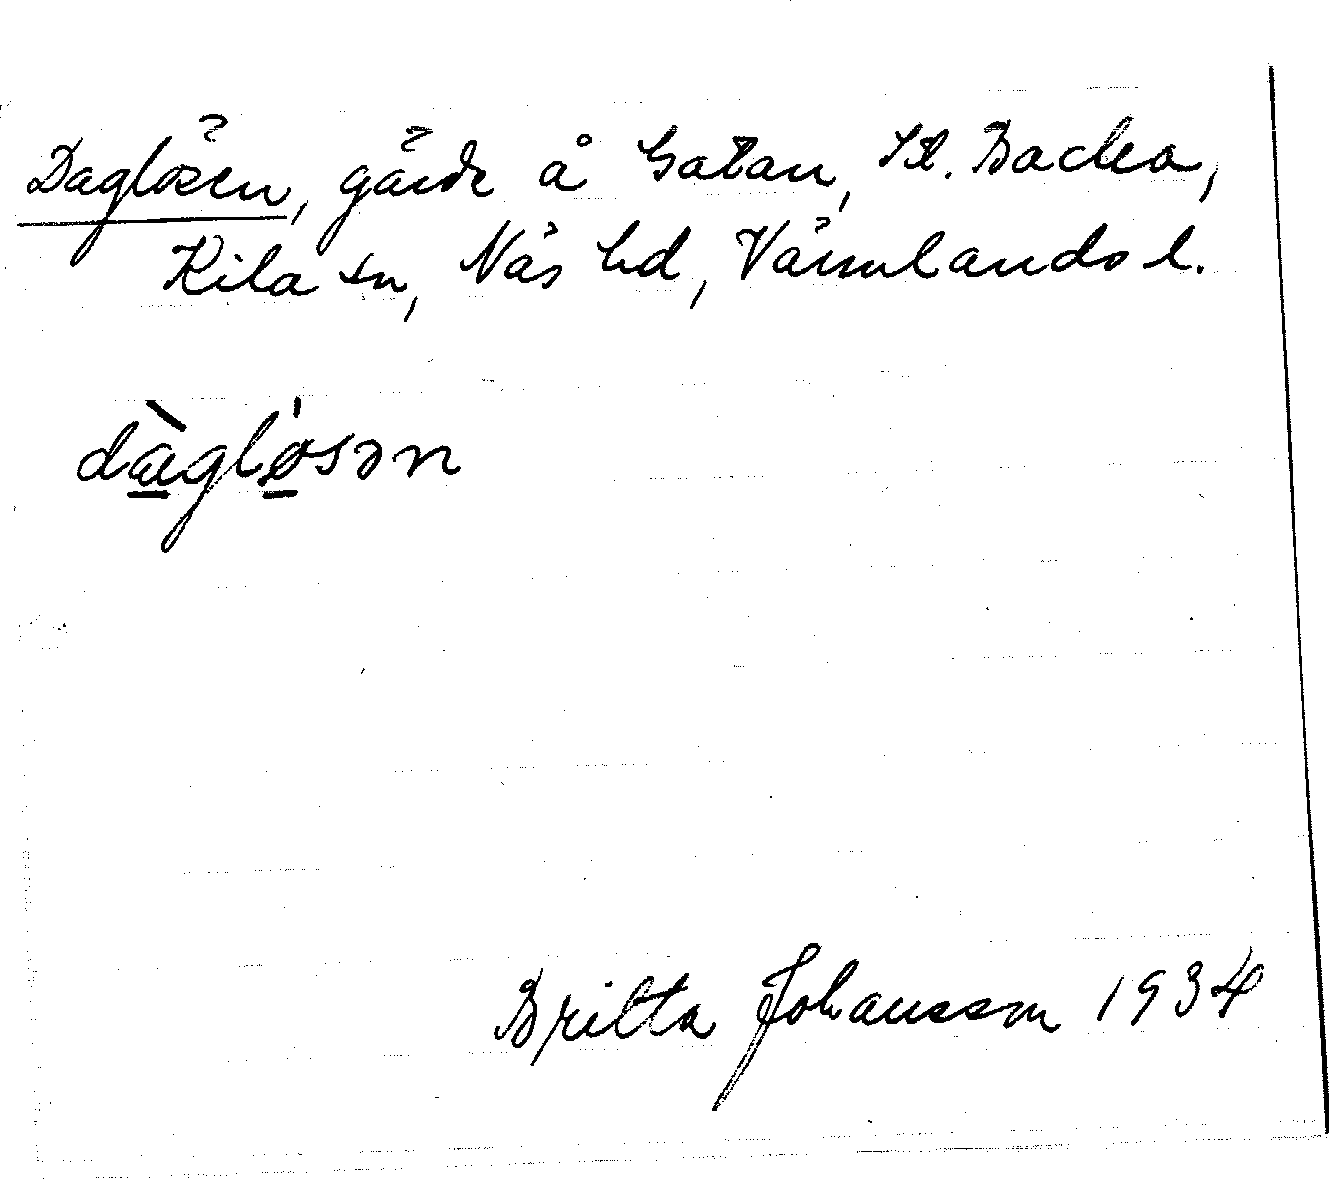 Daglösen, gärde å Gatan, St. Backa,
Kila sn, Näs hd, Värmlands l.
dàglø̀sən
Britta Johansson 1934